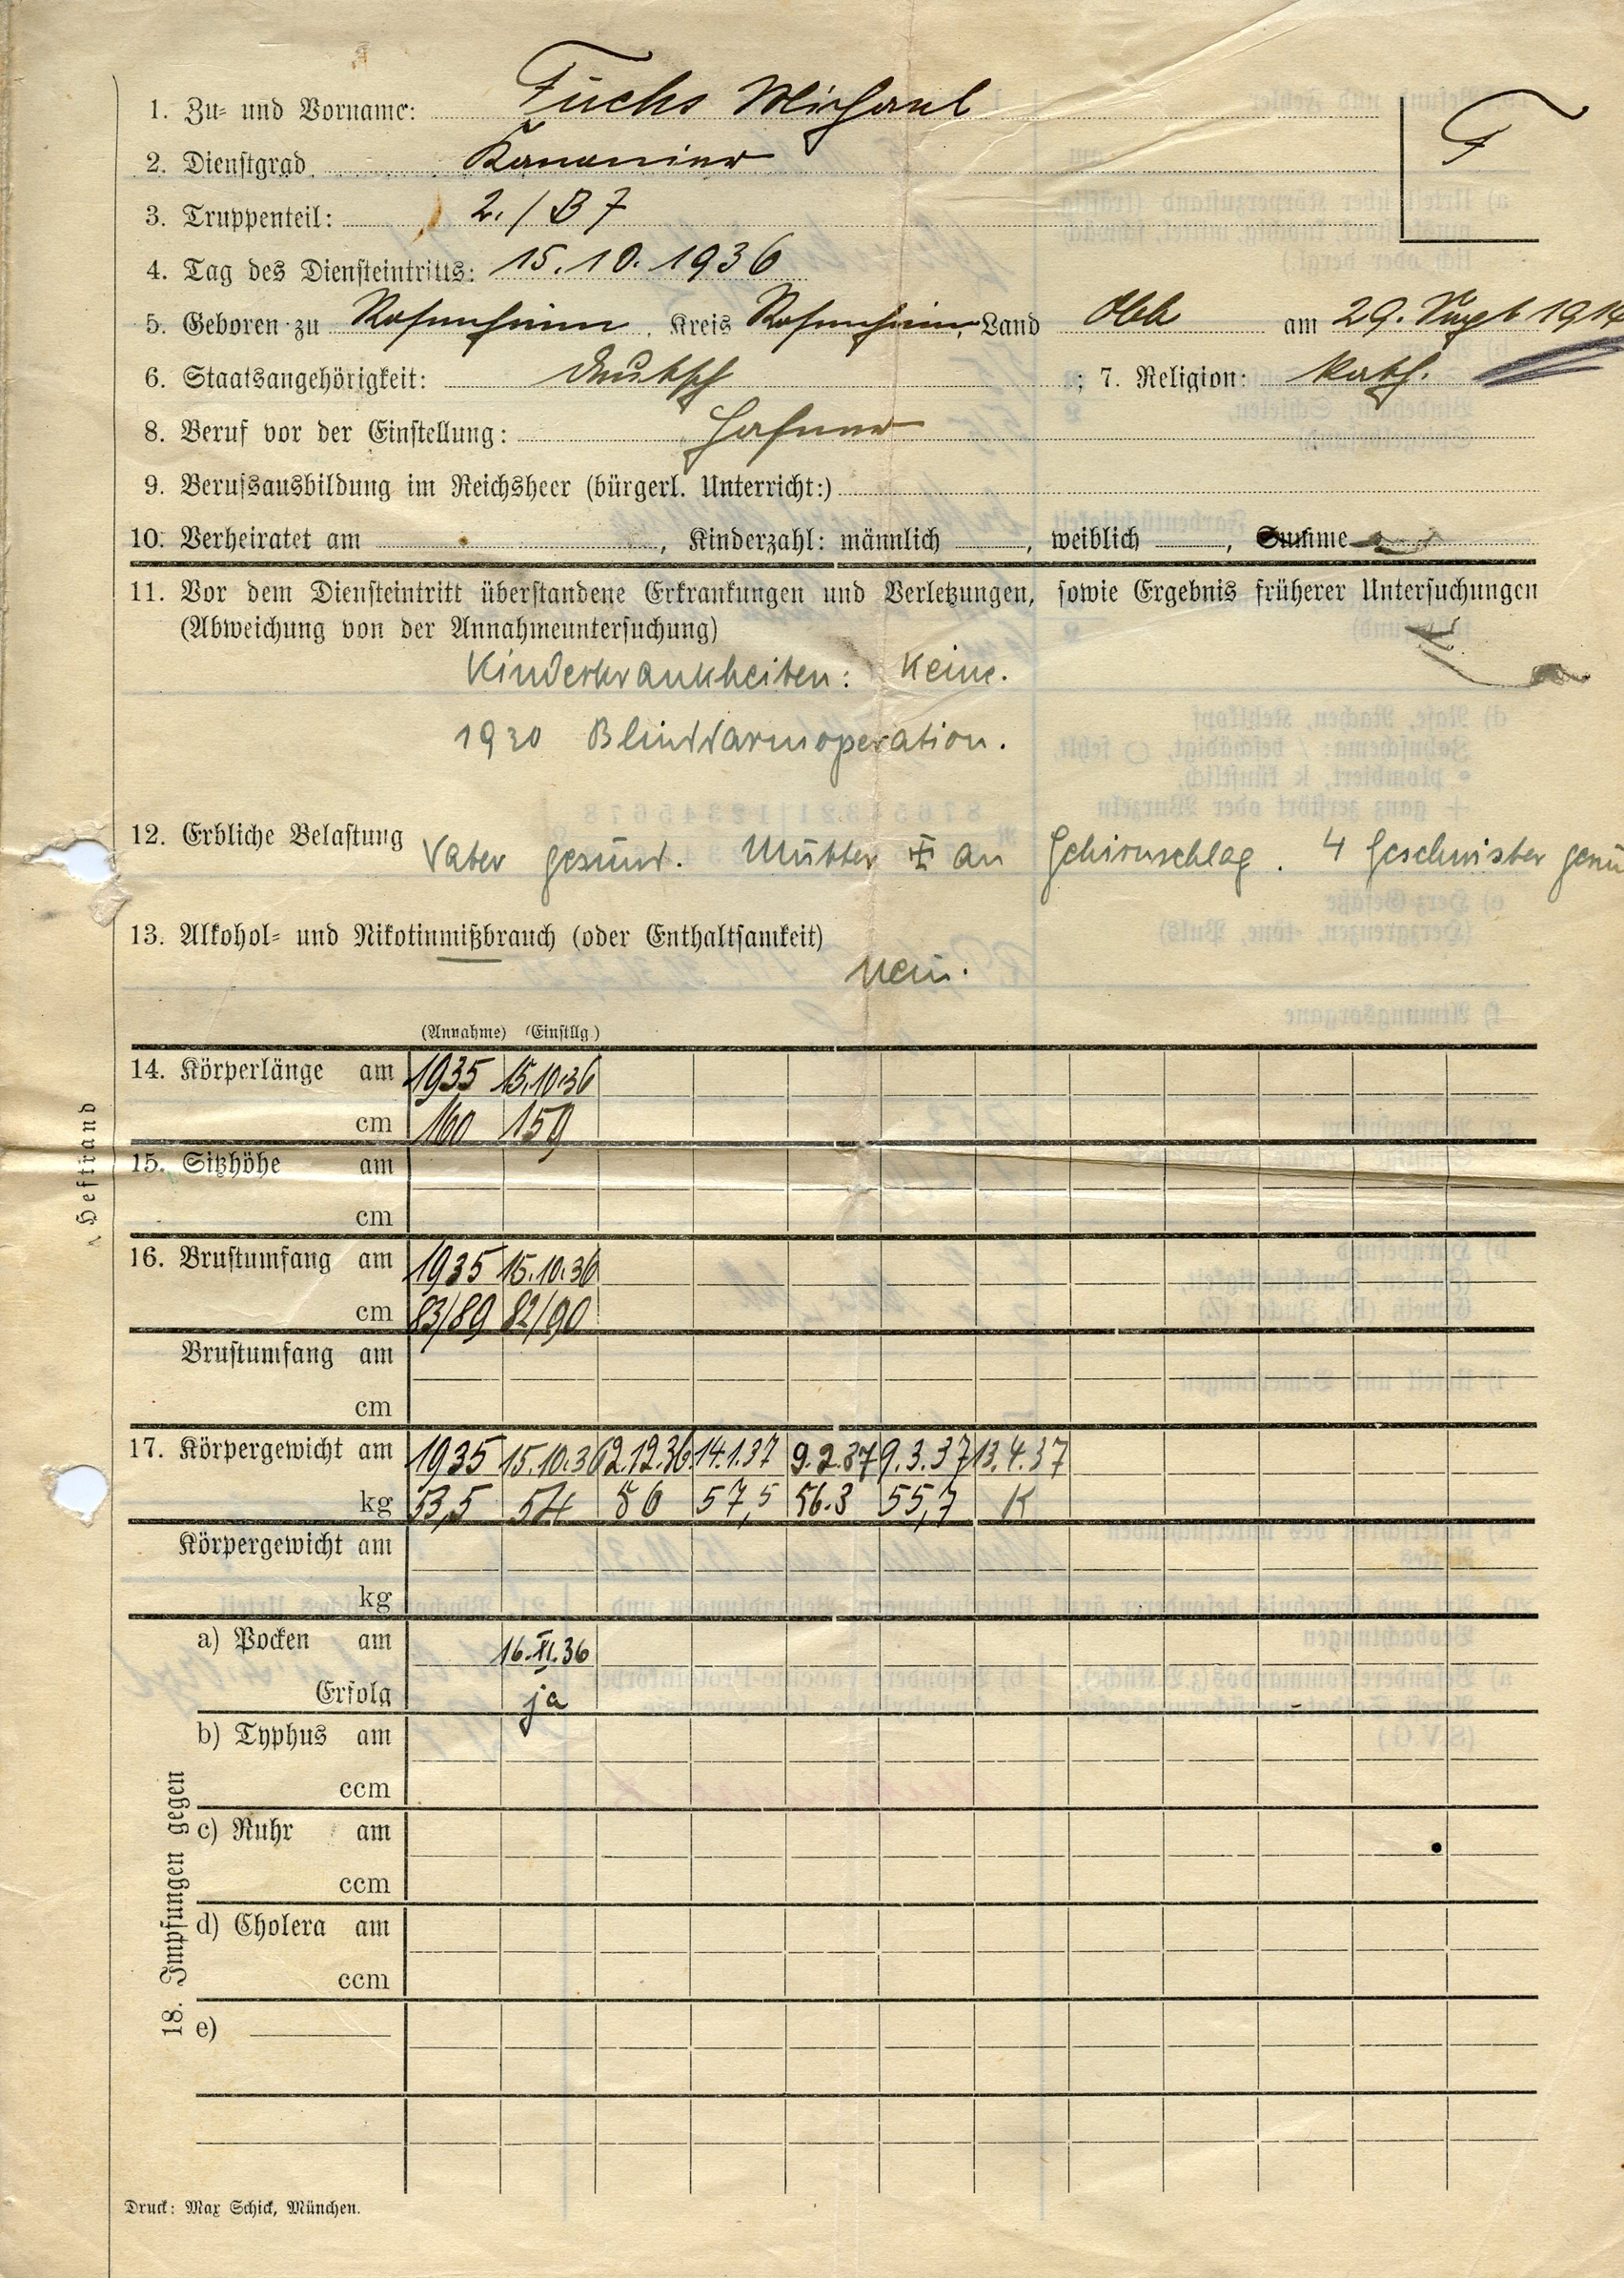 1. Zu- und Vorname: Fuchs Michael
F
2. Dienstgrad Kanonier
3. Truppenteil: 2./B7
4. Tag des Diensteintritts: 15.10.1936
5. Geboren zu Rosenheim, Kreis Rosenheim, Land Obb am 29. Sept 1914
6. Staatsangehörigkeit: deutsch; 7. Religion: kath.
8. Beruf vor der Einstellung: Hafner
9. Berufsausbildung im Reichsheer (bürgerl. Unterricht:)
10. Verheiratet am , Kinderzahl: männlich , weiblich , Summe
11. Vor dem Diensteintritt überstandene Erkrankungen und Verletzungen, sowie Ergebnis früherer Untersuchungen
(Abweichung von der Annahmeuntersuchung)
Kinderkrankheiten: Keine.
1930 Blinddarmoperation.
12. Erbliche Belastung Vater gesund. Mutter ✠ an Gehirnschlag. 4 Geschwister gesu
13. Alkohol- und Nikotinmißbrauch (oder Enthaltsamkeit)
Nein.
(Annahme) (Einstllg)
14. Körperlänge am 1935 15.10.36
cm 160 159
15. Sitzhöhe am
cm
16. Brustumfang am 1935 15.10.36
cm 83/89 82/90
Brustumfang am
cm
17. Körpergewicht am 1935 15.10.36 12.12.36 14.1.37 9.2.37 9.3.37 13.4.37
kg 53,5 54 56 57,5 56.3 55,7 K
Körpergewicht am
kg
18. Impfungen gegen
a) Pocken am 16.XI.36
Erfolg ja
b) Typhus am
ccm
c) Ruhr am
ccm
d) Cholera am
ccm
e)
Heftrand
Druck: Max Schick, München.